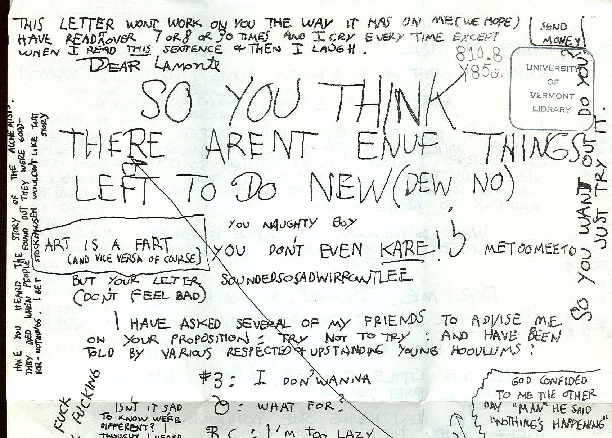 THIS LETTER WONT WORK ON YOU THE WAY IT HAS ON ME (WE HOPE)
HAVE READ OVER 7 OR 8 OR 30 TIMES AND I CRY EVERY TIME EXCEPT
WHEN I READ THIS SENTENCE & THEN I LAUGH.
SEND
MONEY
DEAR LAMONTE
811.8
Y85a
UNIVERSITY
OF
VERMONT
LIBRARY
SO YOU THINK
THERE ARENT ENUF THINGS
LEFT TO DO NEW (DEW NO)
YOU NAUGHTY BOY
ART IS A FART
(AND VICE VERSA OF COURSE)
YOU DON'T EVEN KARE!
METOOMEETO
BUT YOUR LETTER SOUNDEDSOSADWIRROWTLEE
(DON'T FEEL BAD)
I HAVE ASKED SEVERAL OF MY FRIENDS TO ADVISE ME
ON YOUR PROPOSITION: TRY NOT TO TRY: AND HAVE BEEN
TOLD BY VARIOUS RESPECTED & UPSTANDING YOUNG HOODLUMS:
#3: I DON'WANNA
O: WHAT FOR.
B C: I'M TOO LAZY
ISNT IT SAD
TO KNOW WERE
DIFFERENT?
GOD CONFIDED
TO ME THE OTHER
DAY "MAN" HE SAID
"NOTHING'S HAPPENING
SO YOU WANT OUT DO YOU?
JUST TRY IT
HAVE YOU HEARD THE STORY OF THE ALCHEMISTS.
THEY DIED WHEN PEOPLE FOUND OUT THEY WERE GOOD-
FOR-NOTHINGS. I BET STOCKHAUSEN WOULDN'T LIKE THAT
STORY
FUCK
FUCKING